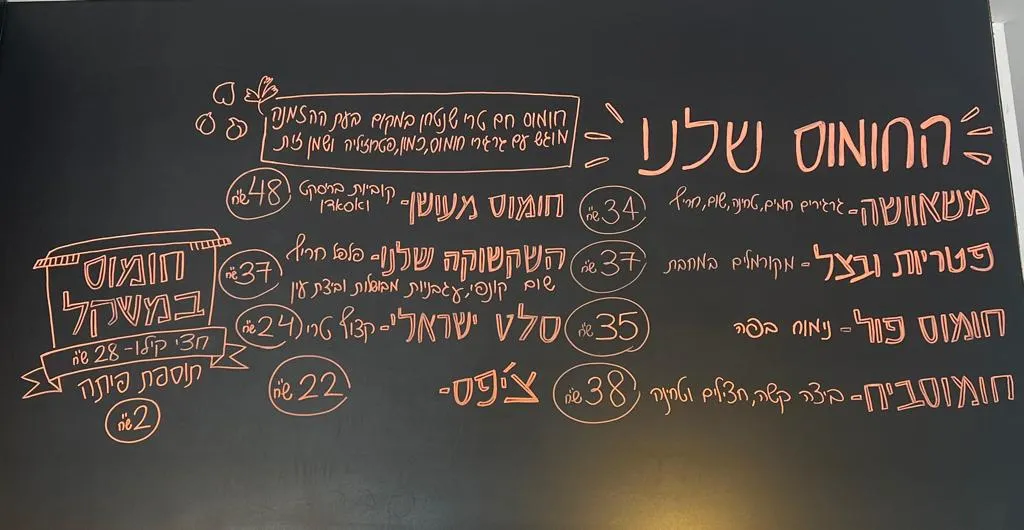 החומוס שלנו
חומוס חם טרי שנטחן במקום בעת ההזמנה
מוגש עם גרגרי חומוס, כמון, פטרוזיליה ושמן זית
משאוושה- גרגירים חמים, טחינה, שום, חריף 34 ש"ח
פטריות ובצל- מקורמלים במחבת 37 ש"ח
חומוס פול- נימוח בפה 35 ש"ח
חומוסביח- ביצה קשה, חצילים וטחינה 38 ש"ח
חומוס מעושן- קוביות בריסקט
ואסאדו 48 ש"ח
השקשוקה שלנו- פלפל חריף
שום קונפי, עגבניות מבושלות וביצת עין 37 ש"ח
סלט ישראלי- קצוץ טרי 24 ש"ח
צ'יפס- 22 ש"ח
חומוס
במשקל
חצי קילו- 28 ש"ח
תוספת פיתה
2 ש"ח